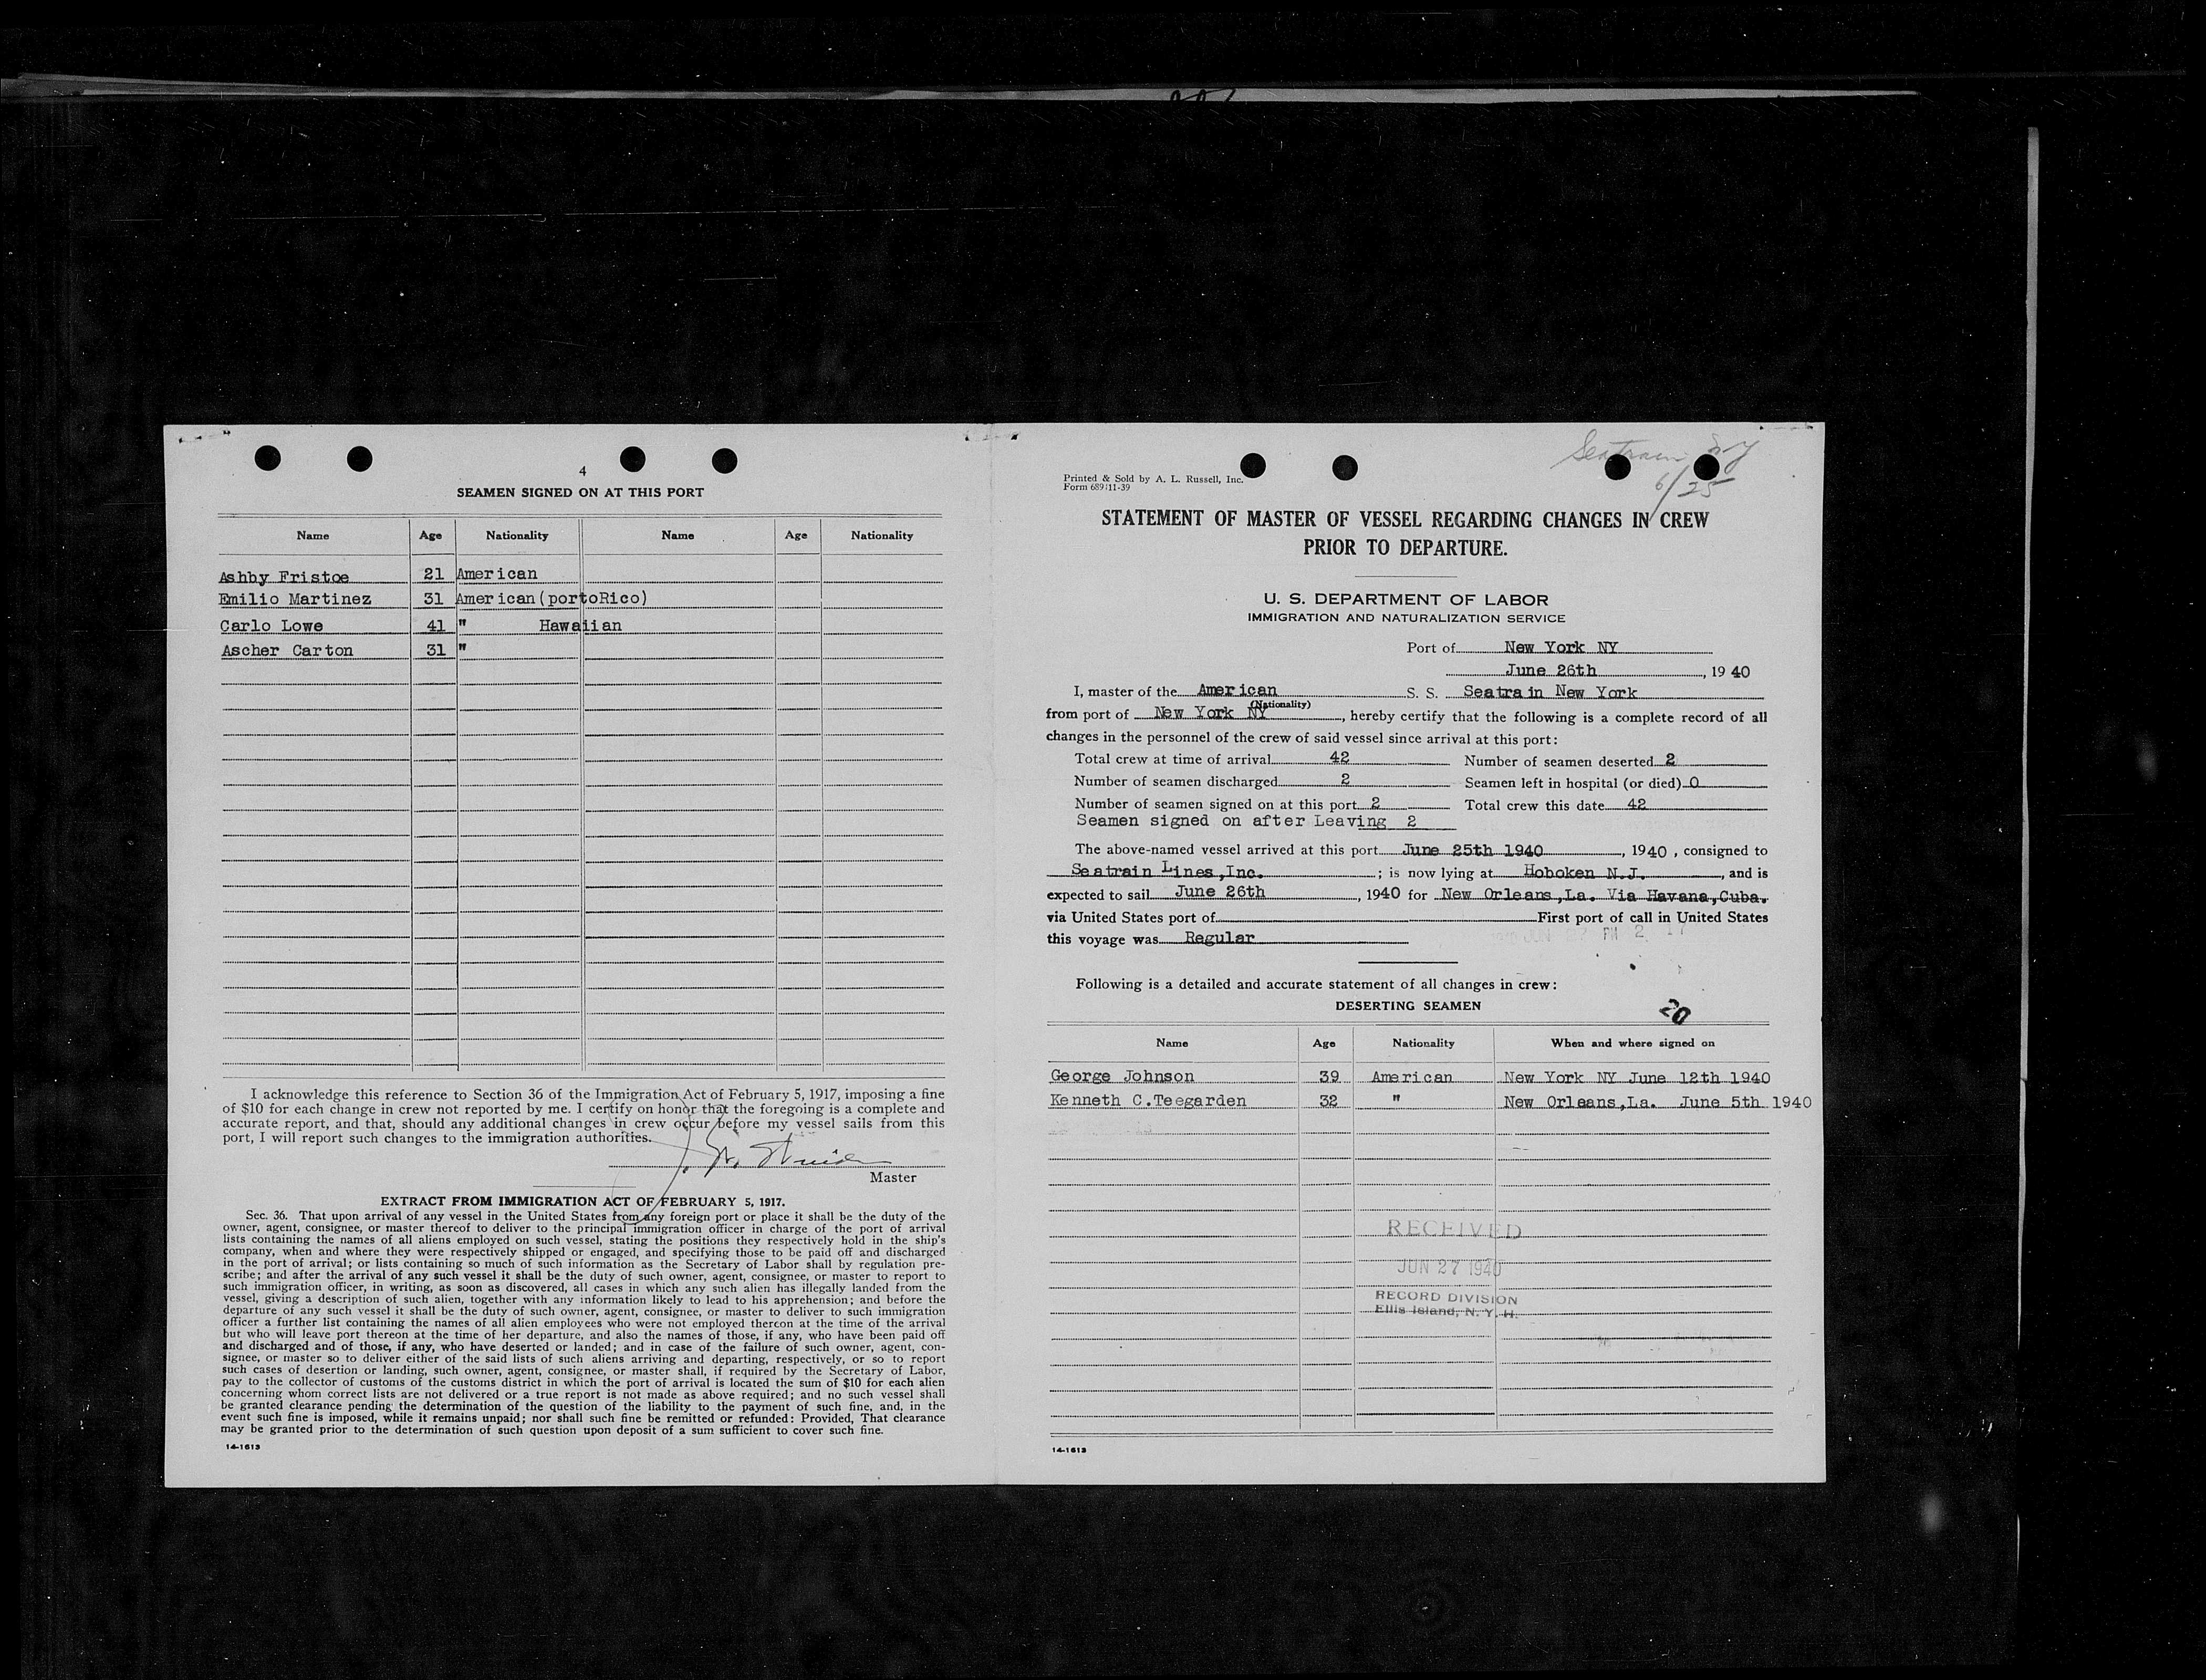 4
SEAMEN SIGNED ON AT THIS PORT
Name Age Nationality Name Age Nationality
Ashby Fristoe 21 American
Emilio Martinez 31 American(portoRico)
Carlo Lowe 41 " Hawaiian
Ascher Carton 31 "
I acknowledge this reference to Section 36 of the Immigration Act of February 5, 1917, imposing a fine
of $10 for each change in crew not reported by me. I certify on honor that the foregoing is a complete and
accurate report, and that, should any additional changes in crew occur before my vessel sails from this
port, I will report such changes to the immigration authorities.
Master
EXTRACT FROM IMMIGRATION ACT OF FEBRUARY 5, 1917.
Sec. 36. That upon arrival of any vessel in the United States from any foreign port or place it shall be the duty of the
owner, agent, consignee, or master thereof to deliver to the principal immigration officer in charge of the port of arrival
lists containing the names of all aliens employed on such vessel, stating the positions they respectively hold in the ship's
company, when and where they were respectively shipped or engaged, and specifying those to be paid off and discharged
in the port of arrival; or lists containing so much of such information as the Secretary of Labor shall by regulation pre-
scribe; and after the arrival of any such vessel it shall be the duty of such owner, agent, consignee, or master to report to
such immigration officer, in writing, as soon as discovered, all cases in which any such alien has illegally landed from the
vessel, giving a description of such alien, together with any information likely to lead to his apprehension; and before the
departure of any such vessel it shall be the duty of such owner, agent, consignee, or master to deliver to such immigration
officer a further list containing the names of all alien employees who were not employed thereon at the time of the arrival
but who will leave port thereon at the time of her departure, and also the names of those, if any, who have been paid off
and discharged and of those, if any, who have deserted or landed; and in case of the failure of such owner, agent, con-
signee, or master so to deliver either of the said lists of such aliens arriving and departing, respectively, or so to report
such cases of desertion or landing, such owner, agent, consignee, or master shall, if required by the Secretary of Labor,
pay to the collector of customs of the customs district in which the port of arrival is located the sum of $10 for each alien
concerning whom correct lists are not delivered or a true report is not made as above required; and no such vessel shall
be granted clearance pending the determination of the question of the liability to the payment of such fine, and, in the
event such fine is imposed, while it remains unpaid; nor shall such fine be remitted or refunded: Provided, That clearance
may be granted prior to the determination of such question upon deposit of a sum sufficient to cover such fine.
14-1613
Seatrain NY
6/25
Printed & Sold by A. L. Russell, Inc.
Form 689 11-39
STATEMENT OF MASTER OF VESSEL REGARDING CHANGES IN CREW
PRIOR TO DEPARTURE.
U. S. DEPARTMENT OF LABOR
IMMIGRATION AND NATURALIZATION SERVICE
Port of New York NY
June 26th, 19 40
I, master of the American S. S. Seatrain New York
(Nationality)
from port of New York NY, hereby certify that the following is a complete record of all
changes in the personnel of the crew of said vessel since arrival at this port:
Total crew at time of arrival 42 Number of seamen deserted 2
Number of seamen discharged 2 Seamen left in hospital (or died) 0
Number of seamen signed on at this port 2 Total crew this date 42
Seamen signed on after Leaving 2
The above-named vessel arrived at this port June 25th 1940, 1940, consigned to
Seatrain Lines,Inc. ; is now lying at Hoboken N.J. , and is
expected to sail June 26th , 1940 for New Orleans,La. Via Havana,Cuba.
via United States port of First port of call in United States
this voyage was Regular
PM 2 17
Following is a detailed and accurate statement of all changes in crew:
DESERTING SEAMEN
20
Name Age Nationality When and where signed on
George Johnson 39 American New York NY June 12th 1940
Kenneth C.Teegarden 32 " New Orleans,La. June 5th 1940
RECEIVED
JUN 27 1940
RECORD DIVISION
Ellis Island, N. Y. H.
14-1613